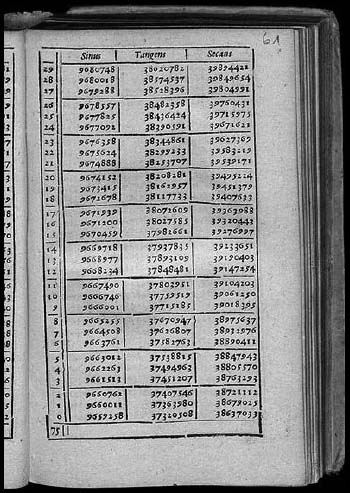 61
Sinus Tangens Secans
29 9680748 38620782 39894421
28 9680018 38574537 39849654
27 9679288 38528396 39804991
26 9678557 38482358 39760431
25 9677825 38436424 39715975
24 9677092 38390591 39671621
23 9676358 38344861 39627369
22 9675624 38299233 39583219
21 9674888 38253707 39539171
20 9674152 38208281 39495224
19 9673415 38162957 39451379
18 9672678 38117733 39407633
17 9671939 38072609 39363988
16 9671200 38027585 39320443
15 9670459 37982661 39276997
14 9669718 37937835 39233651
13 9668977 37893109 39190403
12 9668234 37848481 39147254
11 9667490 37803951 39104203
10 9666746 37759519 39061250
9 9666001 37715185 39018395
8 9665255 37670947 38975637
7 9664508 37626807 38932976
6 9663761 37582763 38890411
5 9663012 37538815 38847943
4 9662263 37494963 38805570
3 9661513 37451207 38763293
2 9660762 37407546 38721112
1 9660011 37363980 38679025
0 9659258 37320508 38637033
75